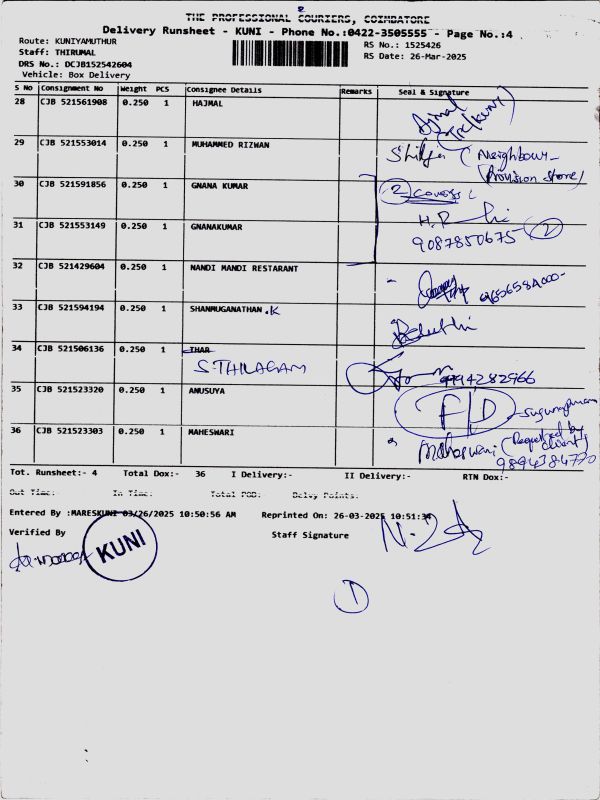 THE PROFESSIONAL COURIERS, COIMBATORE
Delivery Runsheet - KUNI - Phone No.:0422-3505555 - Page No.:4
Route: KUNIYAMUTHUR
RS No.: 1525426
Staff: THIRUMAL
RS Date: 26-Mar-2025
DRS No.: DCJB152542604
Vehicle: Box Delivery
S No Consignment No Weight PCS Consignee Details Remarks Seal & Signature
28 CJB 521561908 0.250 1 HAJMAL
(KUNI)
29 CJB 521553014 0.250 1 MUHAMMED RIZWAN
(Neighbour-
Provision Store)
30 CJB 521591856 0.250 1 GNANA KUMAR
2 covers
31 CJB 521553149 0.250 1 GNANAKUMAR
9087850675 2
32 CJB 521429604 0.250 1 NANDI MANDI RESTARANT
33 CJB 521594194 0.250 1 SHANMUGANATHAN .K
34 CJB 521506136 0.250 1 THAR
S.THILAGAM
9914282966
35 CJB 521523320 0.250 1 ANUSUYA
F/D
36 CJB 521523303 0.250 1 MAHESWARI
Maheswari (Required by
client)
9894384770
Tot. Runsheet:- 4 Total Dox:- 36 I Delivery:- II Delivery:- RTN Dox:-
Out Time: In Time: Total POD: Delvy Points:
Entered By :MARESKUNI 03/26/2025 10:50:56 AM Reprinted On: 26-03-2025 10:51:34
Verified By
Staff Signature
KUNI
1